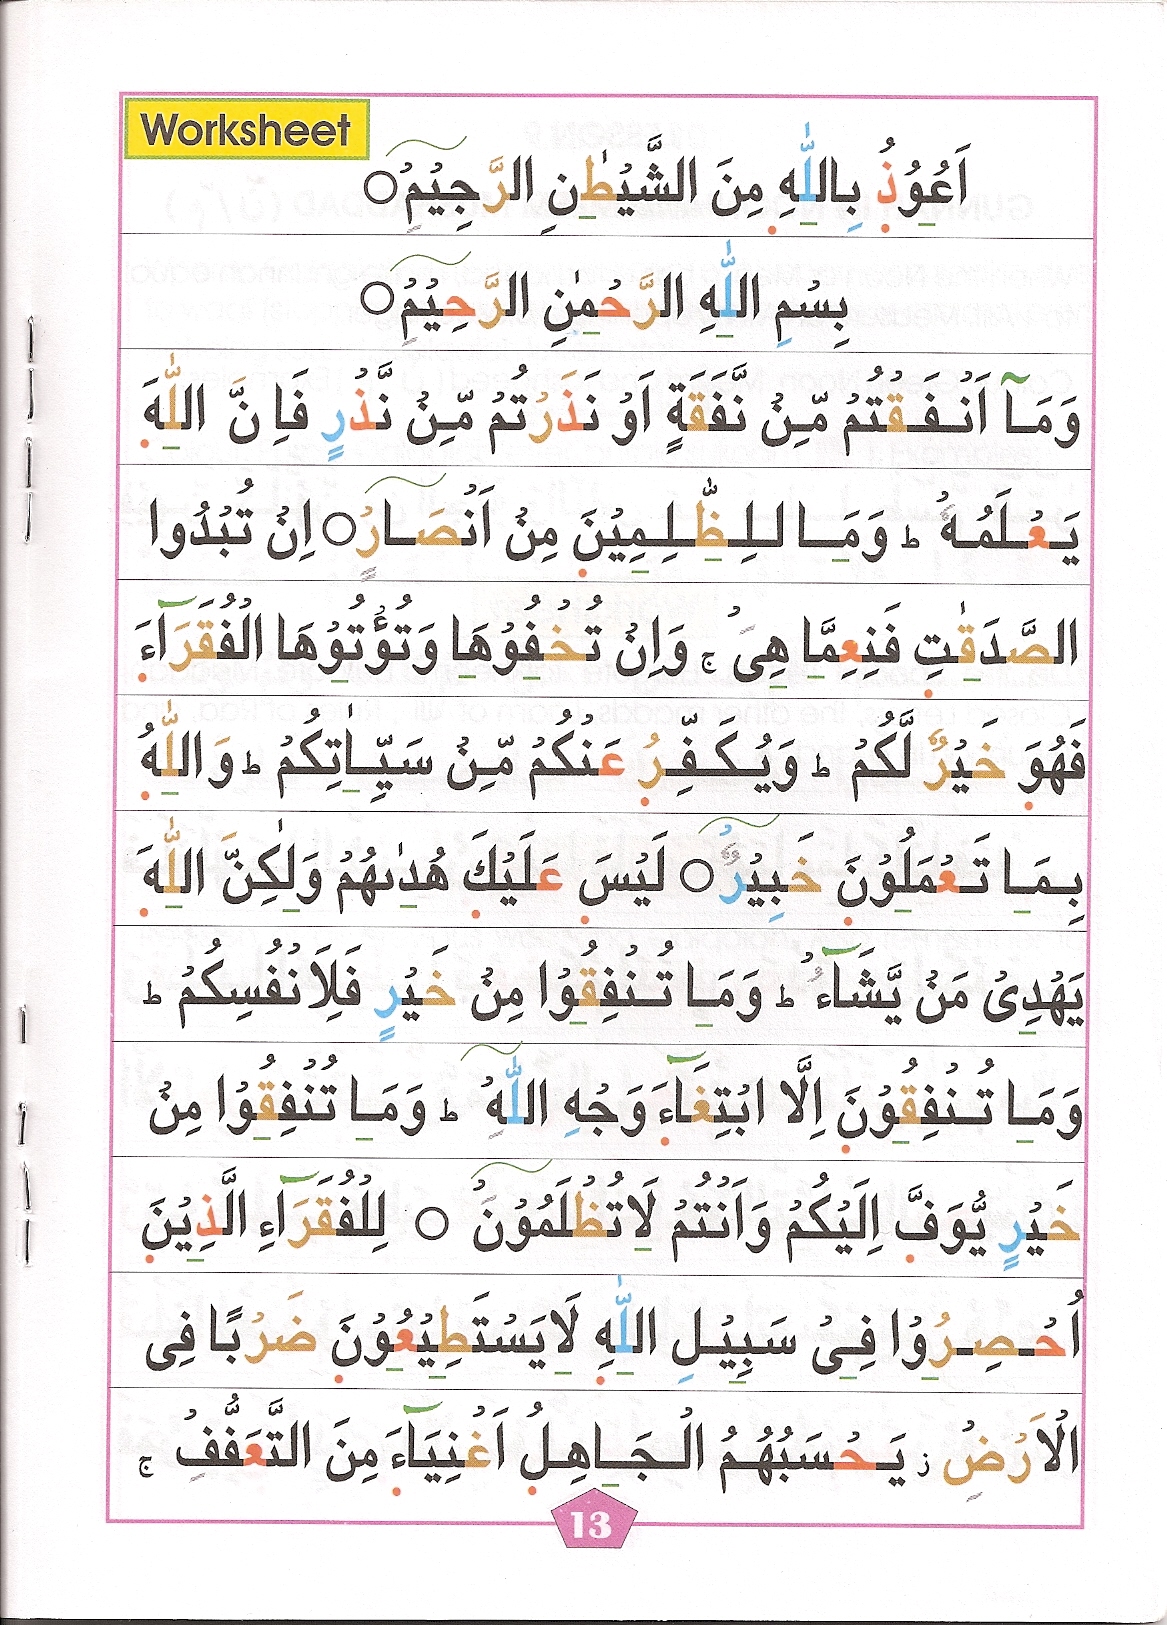 Worksheet
اَعُوْذُ بِاللّٰهِ مِنَ الشَّيْطٰنِ الرَّجِيْمِ ○
بِسْمِ اللّٰهِ الرَّحْمٰنِ الرَّحِيْمِ ○
وَمَاۤ اَنْفَقْتُمْ مِّنْ نَّفَقَةٍ اَوْ نَذَرْتُمْ مِّنْ نَّذْرٍ فَاِنَّ اللّٰهَ
يَعْلَمُهٗ ؕ وَمَا لِلظّٰلِمِيْنَ مِنْ اَنْصَارٍ ○ اِنْ تُبْدُوا
الصَّدَقٰتِ فَنِعِمَّا هِىَ ۚ وَاِنْ تُخْفُوْهَا وَتُؤْتُوْهَا الْفُقَرَآءَ
فَهُوَ خَيْرٌ لَّكُمْ ؕ وَيُكَفِّرُ عَنْكُمْ مِّنْ سَيِّاٰتِكُمْ ؕ وَاللّٰهُ
بِمَا تَعْمَلُوْنَ خَبِيْرٌ ○ لَيْسَ عَلَيْكَ هُدٰىهُمْ وَلٰكِنَّ اللّٰهَ
يَهْدِىْ مَنْ يَّشَآءُ ؕ وَمَا تُنْفِقُوْا مِنْ خَيْرٍ فَلِاَنْفُسِكُمْ ؕ
وَمَا تُنْفِقُوْنَ اِلَّا ابْتِغَآءَ وَجْهِ اللّٰهِ ؕ وَمَا تُنْفِقُوْا مِنْ
خَيْرٍ يُّوَفَّ اِلَيْكُمْ وَاَنْتُمْ لَا تُظْلَمُوْنَ ○ لِلْفُقَرَآءِ الَّذِيْنَ
اُحْصِرُوْا فِىْ سَبِيْلِ اللّٰهِ لَا يَسْتَطِيْعُوْنَ ضَرْبًا فِى
الْاَرْضِ ز يَحْسَبُهُمُ الْجَاهِلُ اَغْنِيَآءَ مِنَ التَّعَفُّفِ ۚ
13